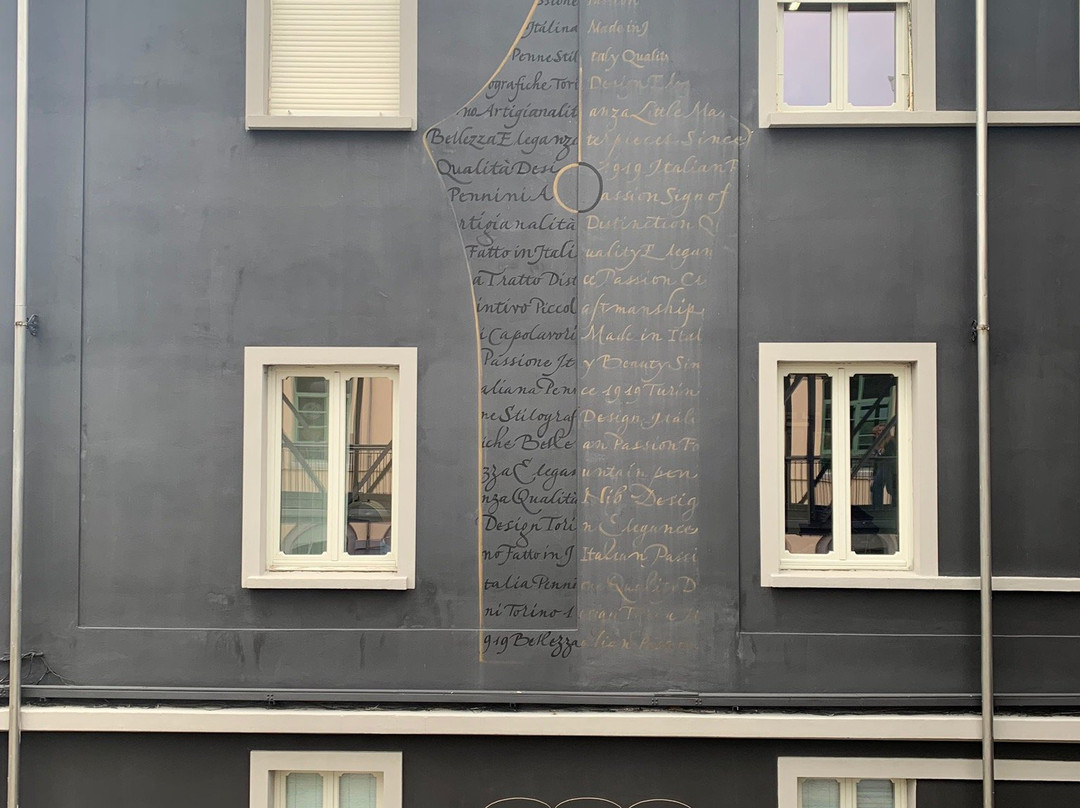 ssione Passion
Italina Made in I
Penne Stil taly Quality
ografiche Tori Design Ele
no Artigianalit anza Little Ma
Bellezza Eleganza terpieces Since
Qualità Desi 1919 Italian P
Pennini A assion Sign of
rtigianalità Distinction Q
Fatto in Itali uality Elegan
a Tratto Dist ce Passion Cr
intivo Piccol aftmanship
i Capolavori Made in Ital
Passione It y Beauty Sin
aliana Pen ce 1919 Turin
ne Stilograf Design Itali
iche Belle an Passion Fo
zza Elegan untain pen
nza Qualità Nib Desig
Design Tori n Elegance
no Fatto in I Italian Passi
talia Penni Quality D
ni Torino 1
919 Bellezza alian Passion